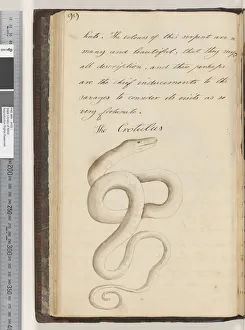 huts. The colours of this serpent are so
many and beautiful, that they
all description, and these perhaps
are the chief inducements to the
savages to consider its visits as so
very fortunate.
The